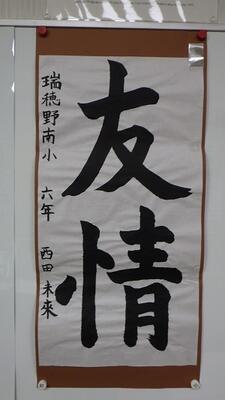 友情
瑞穂野南小 六年 西田未來